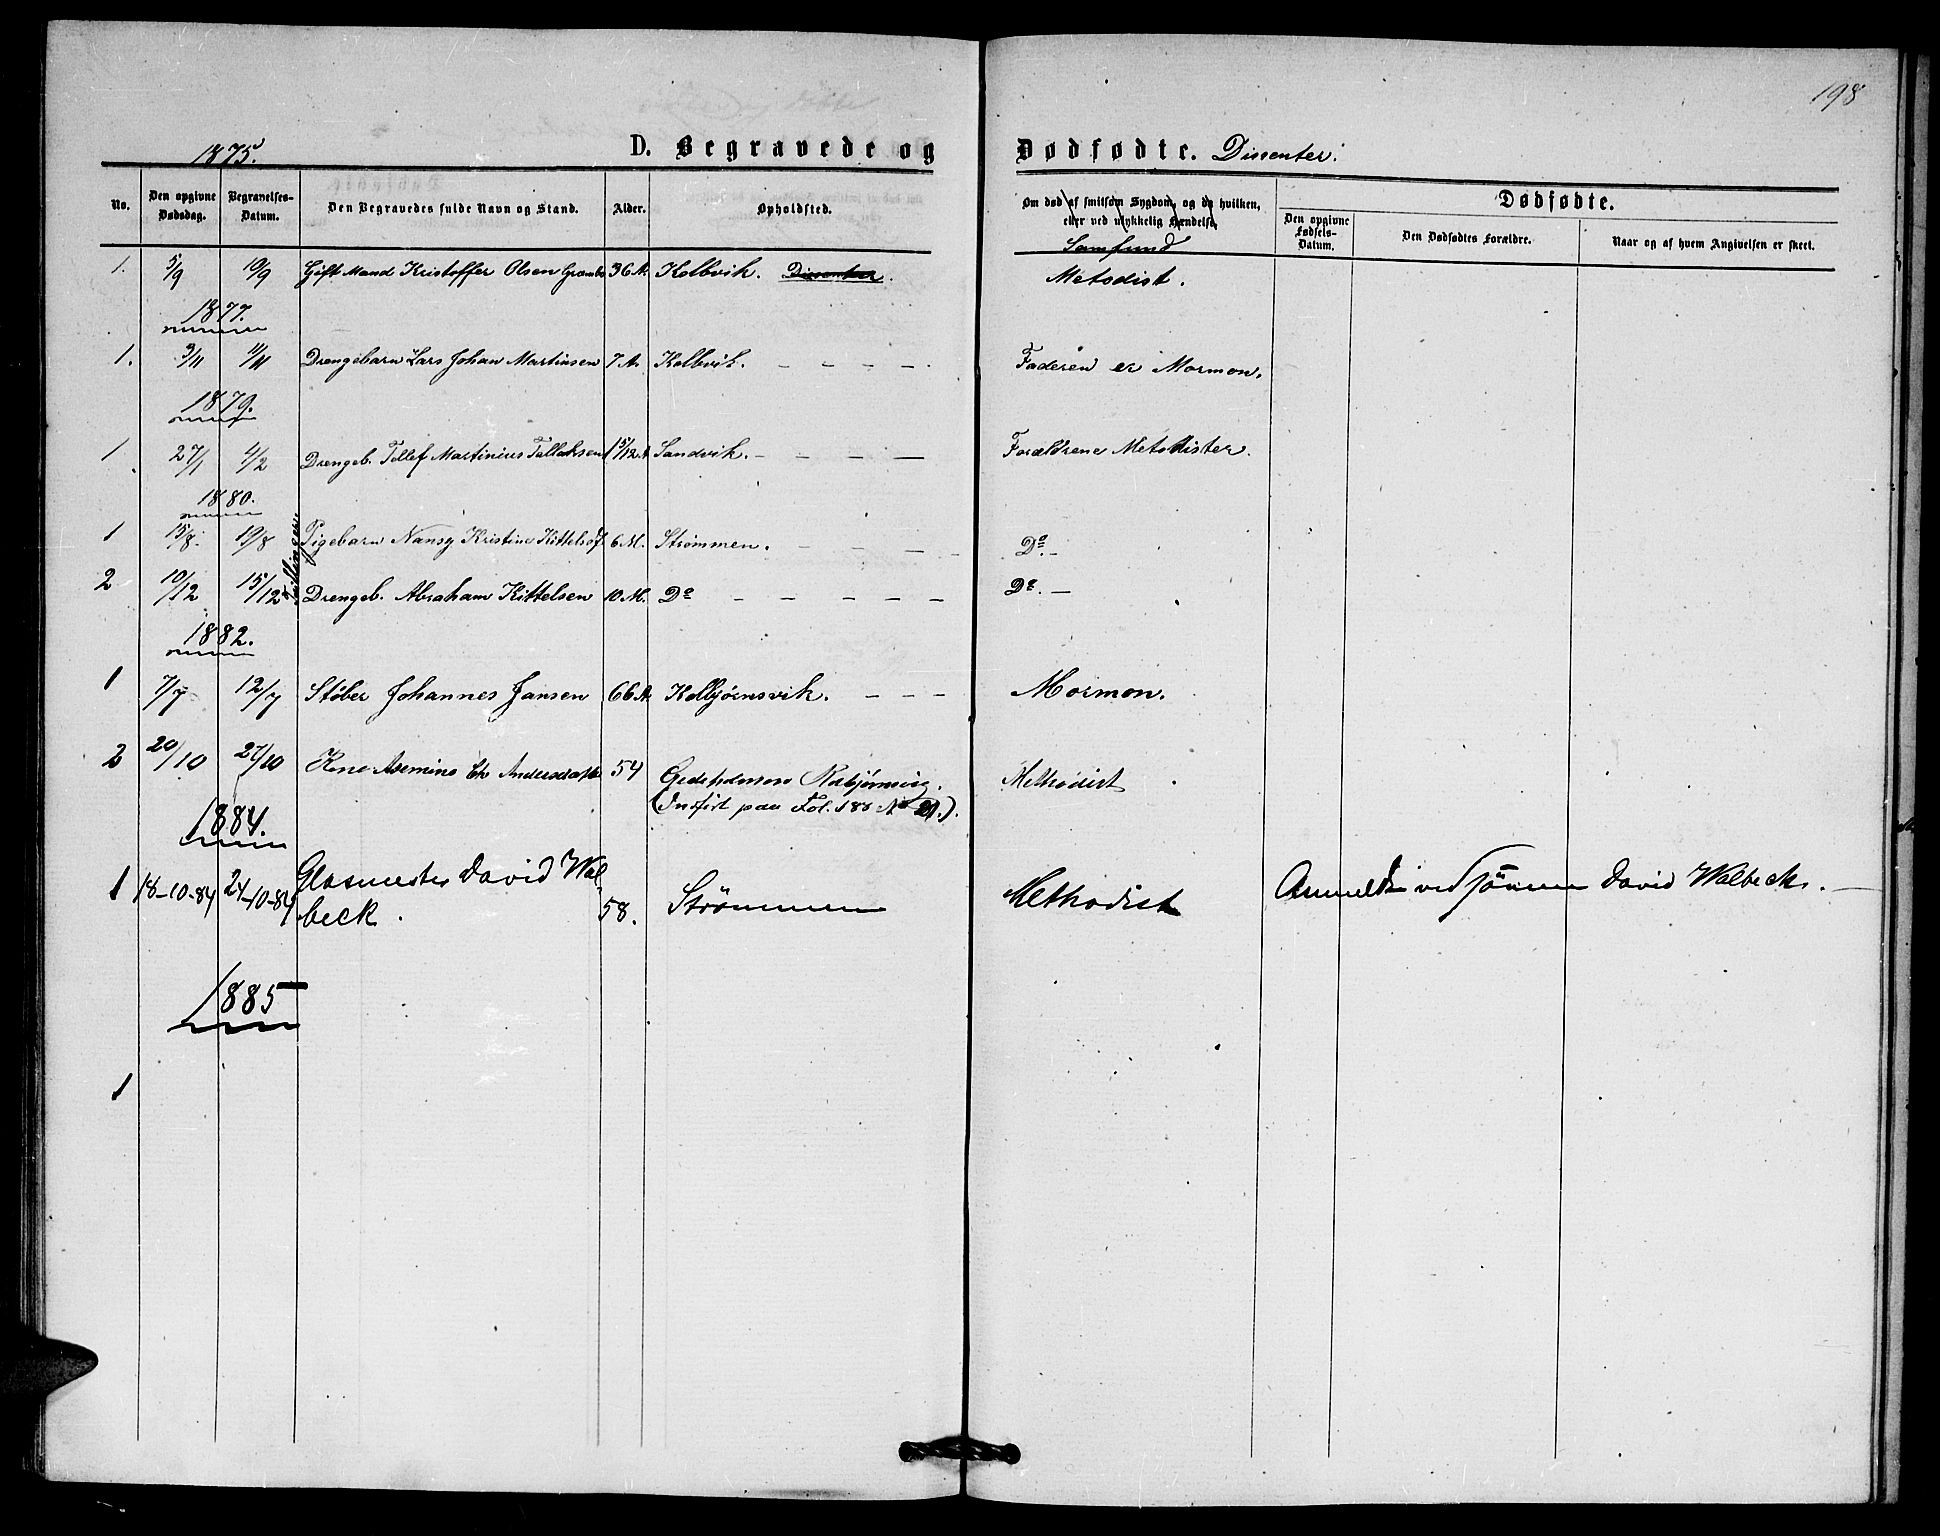 198
1875. D. Begravede og Dødfødte. Dissenter.
No. Den opgivne Dødsdag. Begravelses-Datum. Den Begravedes fulde Navn og Stand. Alder. Opholdsted. Om død af smitsom Sygdom, og da hvilken, eller ved ulykkelig Hændelse. Dødfødte.
Den opgivne Fødsels-Datum. Den Dødfødtes Forældre. Naar og af hvem Angivelsen er skeet.
Samfund
1. 5/9 10/9 Gift Mand Kristoffer Olsen 36 A. Kolbvik. Dissenter. Metodist.
1877.
1. 3/11 11/11 Drengebarn Lars Johan Martinsen 7 A. Kolbvik. — — — — — Faderen er Mormon.
1879.
1 27/1 4/2 Drengeb. Tellef Martinius Tallaksen 1 5/12 A Sandvik. — — — — — Forældrene Metodister.
1880.
1 15/8 19/8 Pigebarn Nansy Kristine Kittelsdf 6 M. Strømmen. — — — — Do. —
Tvillinger
2 10/12 15/12 Drengeb. Abraham Kittelsen 10 M. Do — — — — — Do. —
1882.
1 7/7 12/7 Støber Johannes Jansen 66 A. Kolbjørnsvik. — — — Mormon.
2 20/10 27/10 Kone Asemine Ch Andersdatter 54 Methodist
(Indført paa Fol. 188 No 21.).
1884.
1 18-10-84 24-10-84 Glasmester David Wal
beck. 58. Strømmen Methodist Anmeldt ved Sønnen David Walbeck. —
1885
1